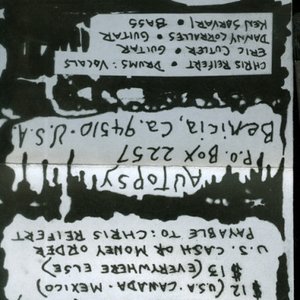 $12 (U.S.A. - CANADA - MEXICO)
$15 (EVERYWHERE ELSE)
U.S. CASH OR MONEY ORDER
PAYABLE TO: CHRIS REIFERT
AUTOPSY
P.O. BOX 2257
BENICIA, CA. 94510 · U.S.A
CHRIS REIFERT • DRUMS : VOCALS
ERIC CUTLER • GUITAR
DANNY CORRALLES • GUITAR
KEN SORVARI • BASS